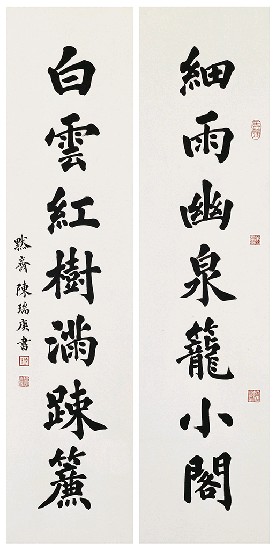 細雨幽泉籠小閣
白雲紅樹滿疎簾
默齋陳瑞庚書